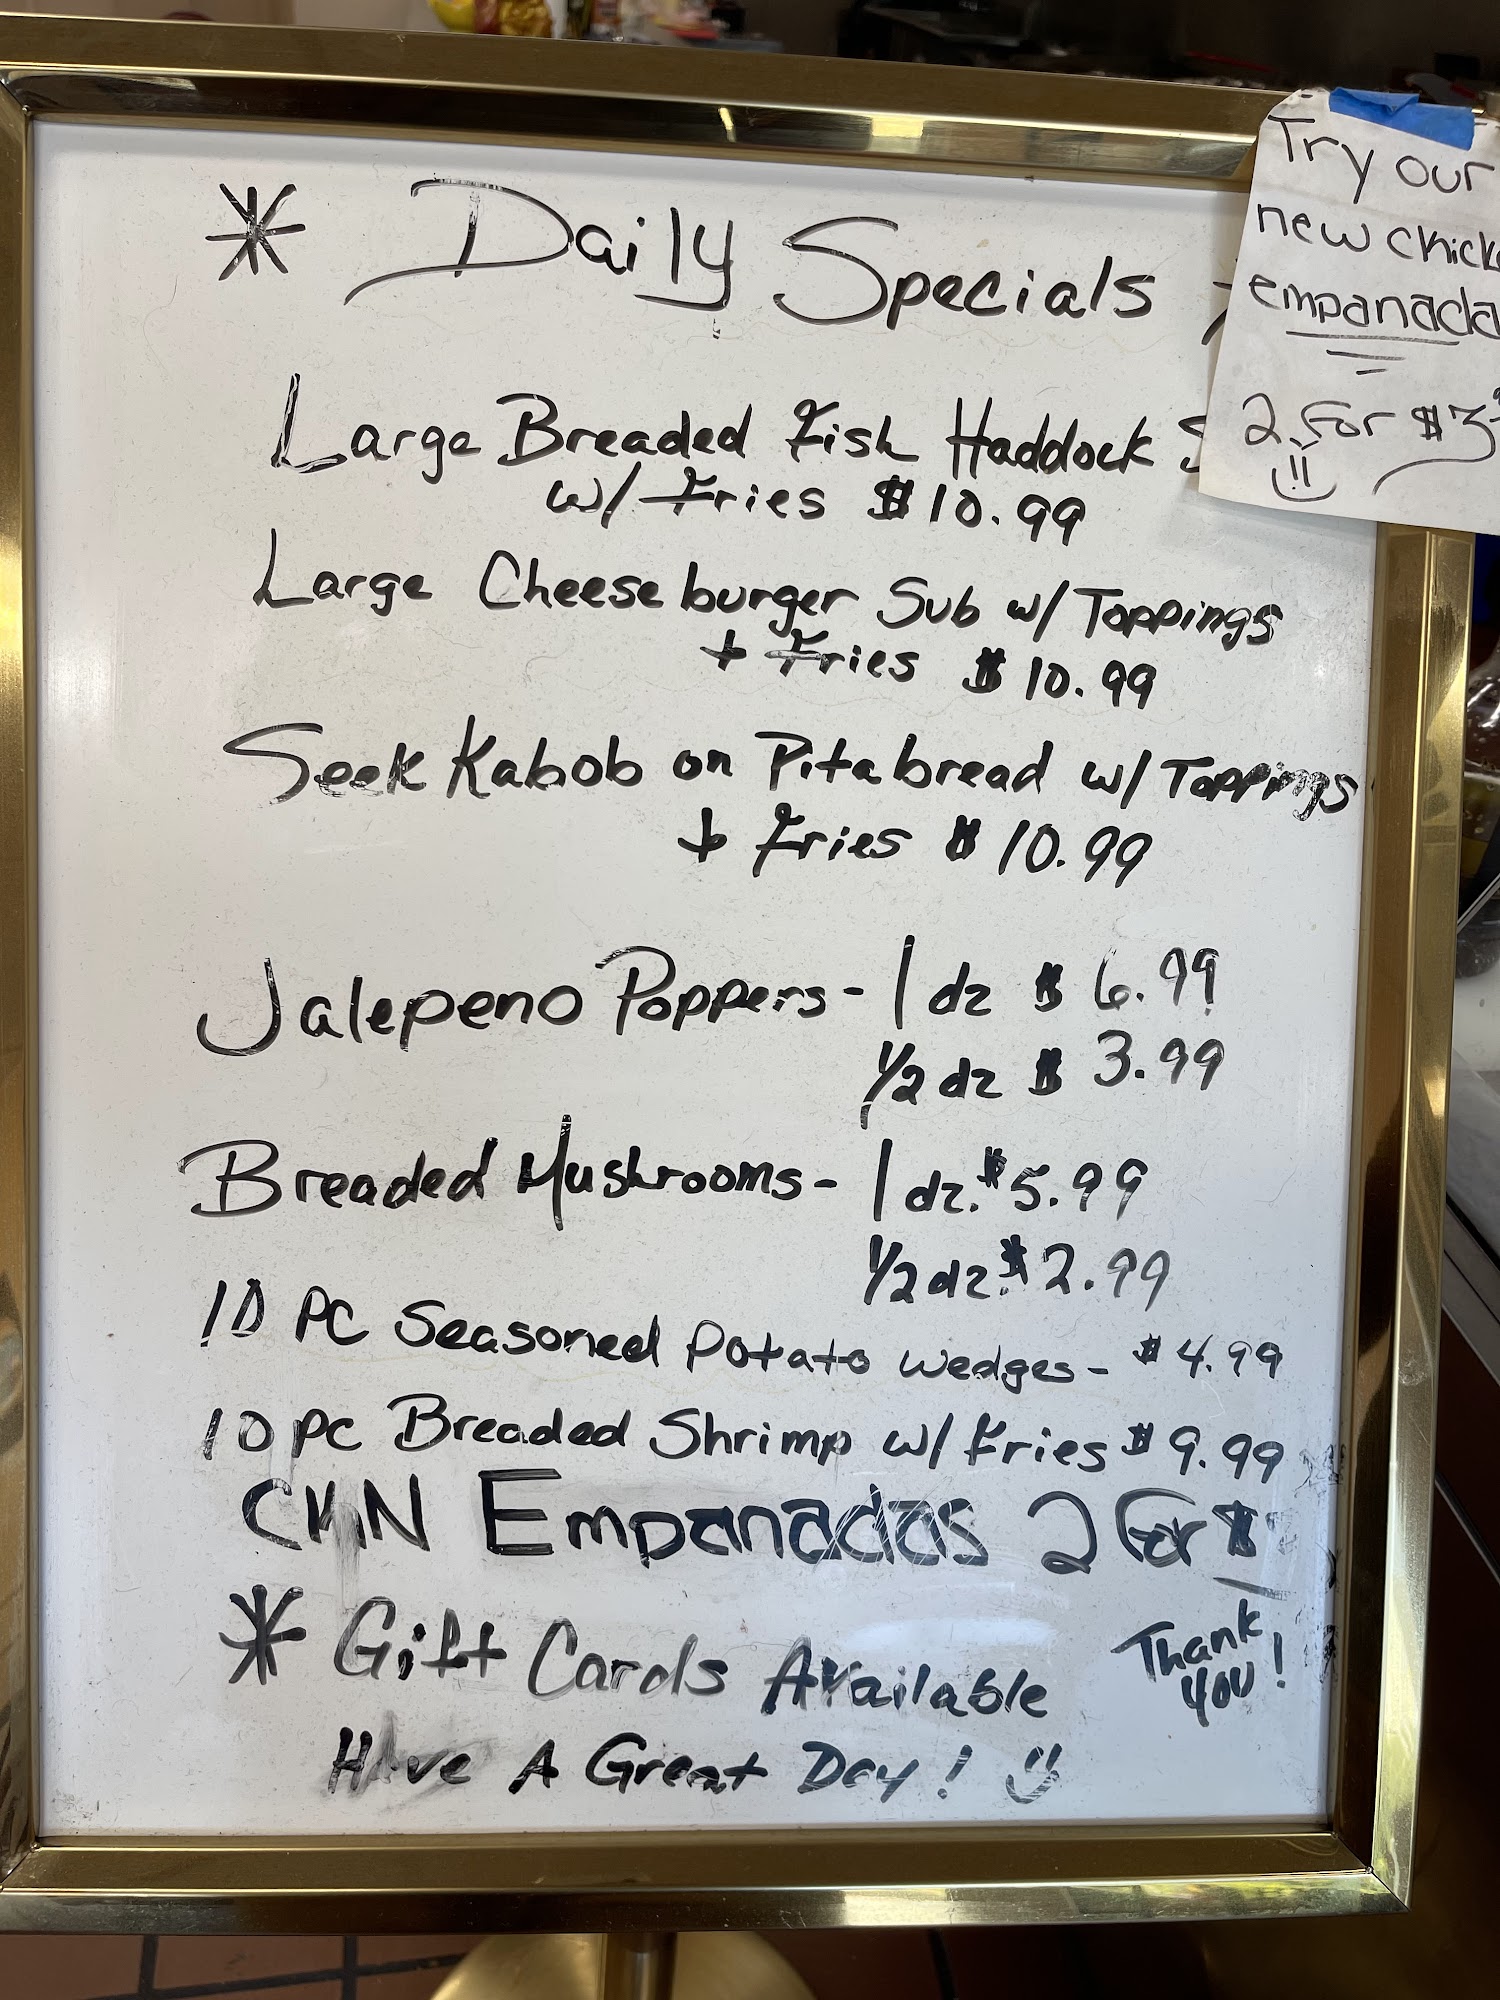 * Daily Specials
Large Breaded Fish Haddock
w/ Fries $10.99
Large Cheeseburger Sub w/ Toppings
+ Fries $10.99
Seek Kabob on Pita bread w/ Toppings
+ Fries $10.99
Jalepeno Poppers - 1 dz $6.99
1/2 dz $3.99
Breaded Mushrooms - 1 dz. $5.99
1/2 dz. $2.99
10 PC Seasoned Potato Wedges - $4.99
10 PC Breaded Shrimp w/ Fries $9.99
CHN Empanadas 2 For $
* Gift Cards Available
Thank
you!
Have A Great Day!
Try our
new chick
empanada
2 For $3